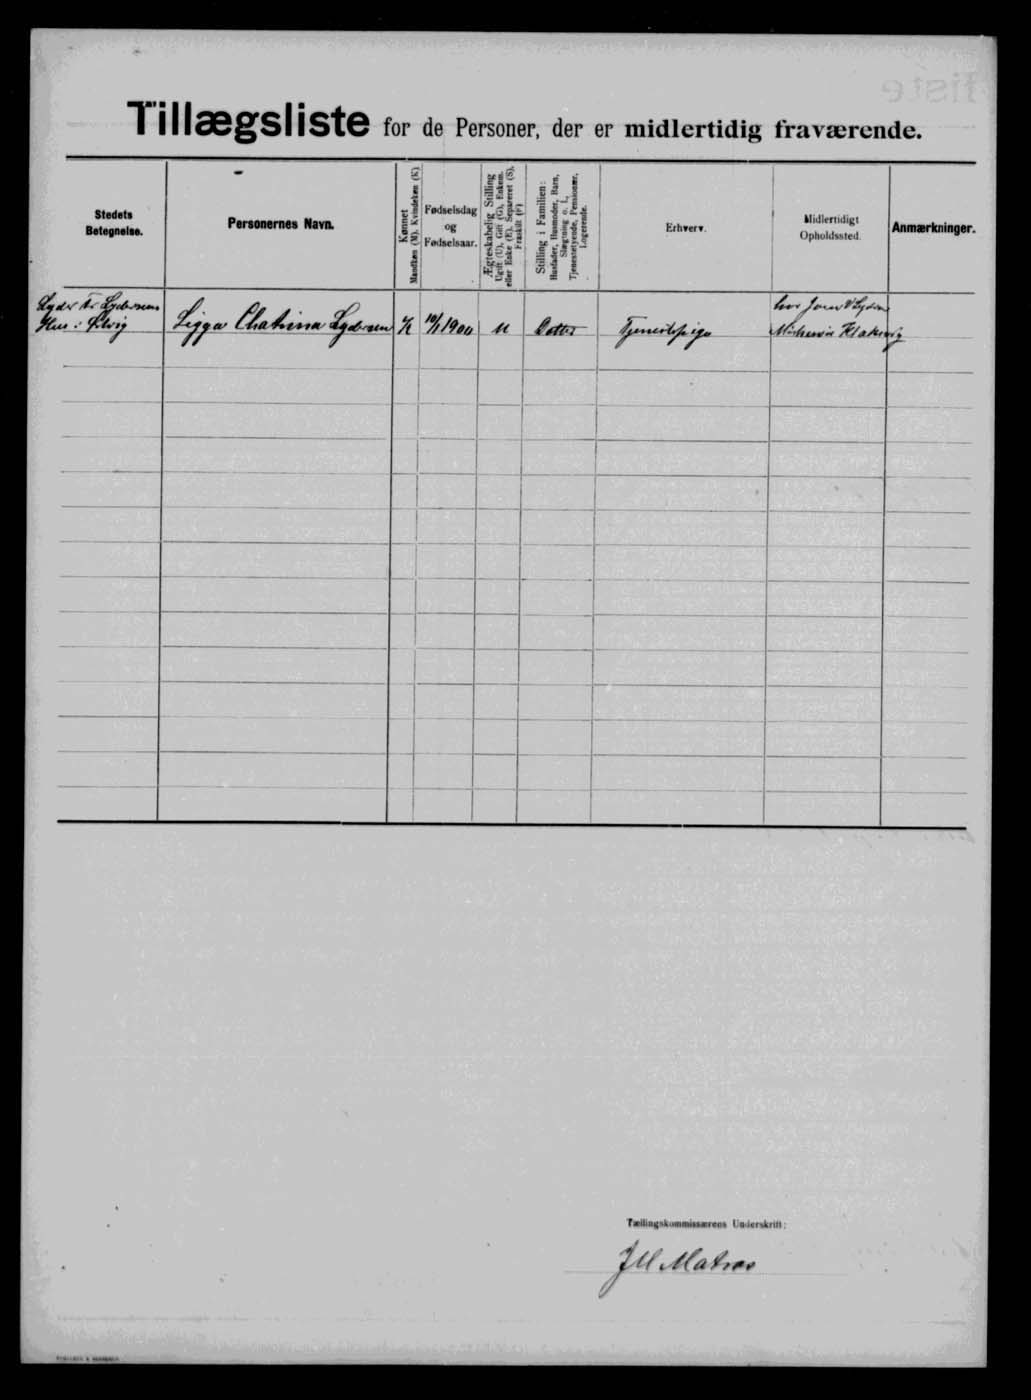 Tillægsliste for de Personer, der er midlertidig fraværende.
Stedets
Betegnelse.
Personernes Navn.
Kønnet
Mandkøn (M). Kvindekøn (K)
Fødselsdag
og
Fødselsaar.
Ægteskabelig Stilling
Ugift (U), Gift (G), Enkem.
eller Enke (E), Separeret (S),
Fraskilt (F)
Stilling i Familien:
Husfader, Husmoder, Barn,
Slægtning o. l.,
Tjenestetyende, Pensionær,
Logerende.
Erhverv.
Midlertidigt
Opholdssted.
Anmærkninger.
Lyder Fr Lydersens
Hus i
Sigga Chatrina Lydersen
K
10/1 1900
U
Datter
Tjenestepige
hos
Klaksvig
Tællingskommissærens Underskrift:
J M Matras